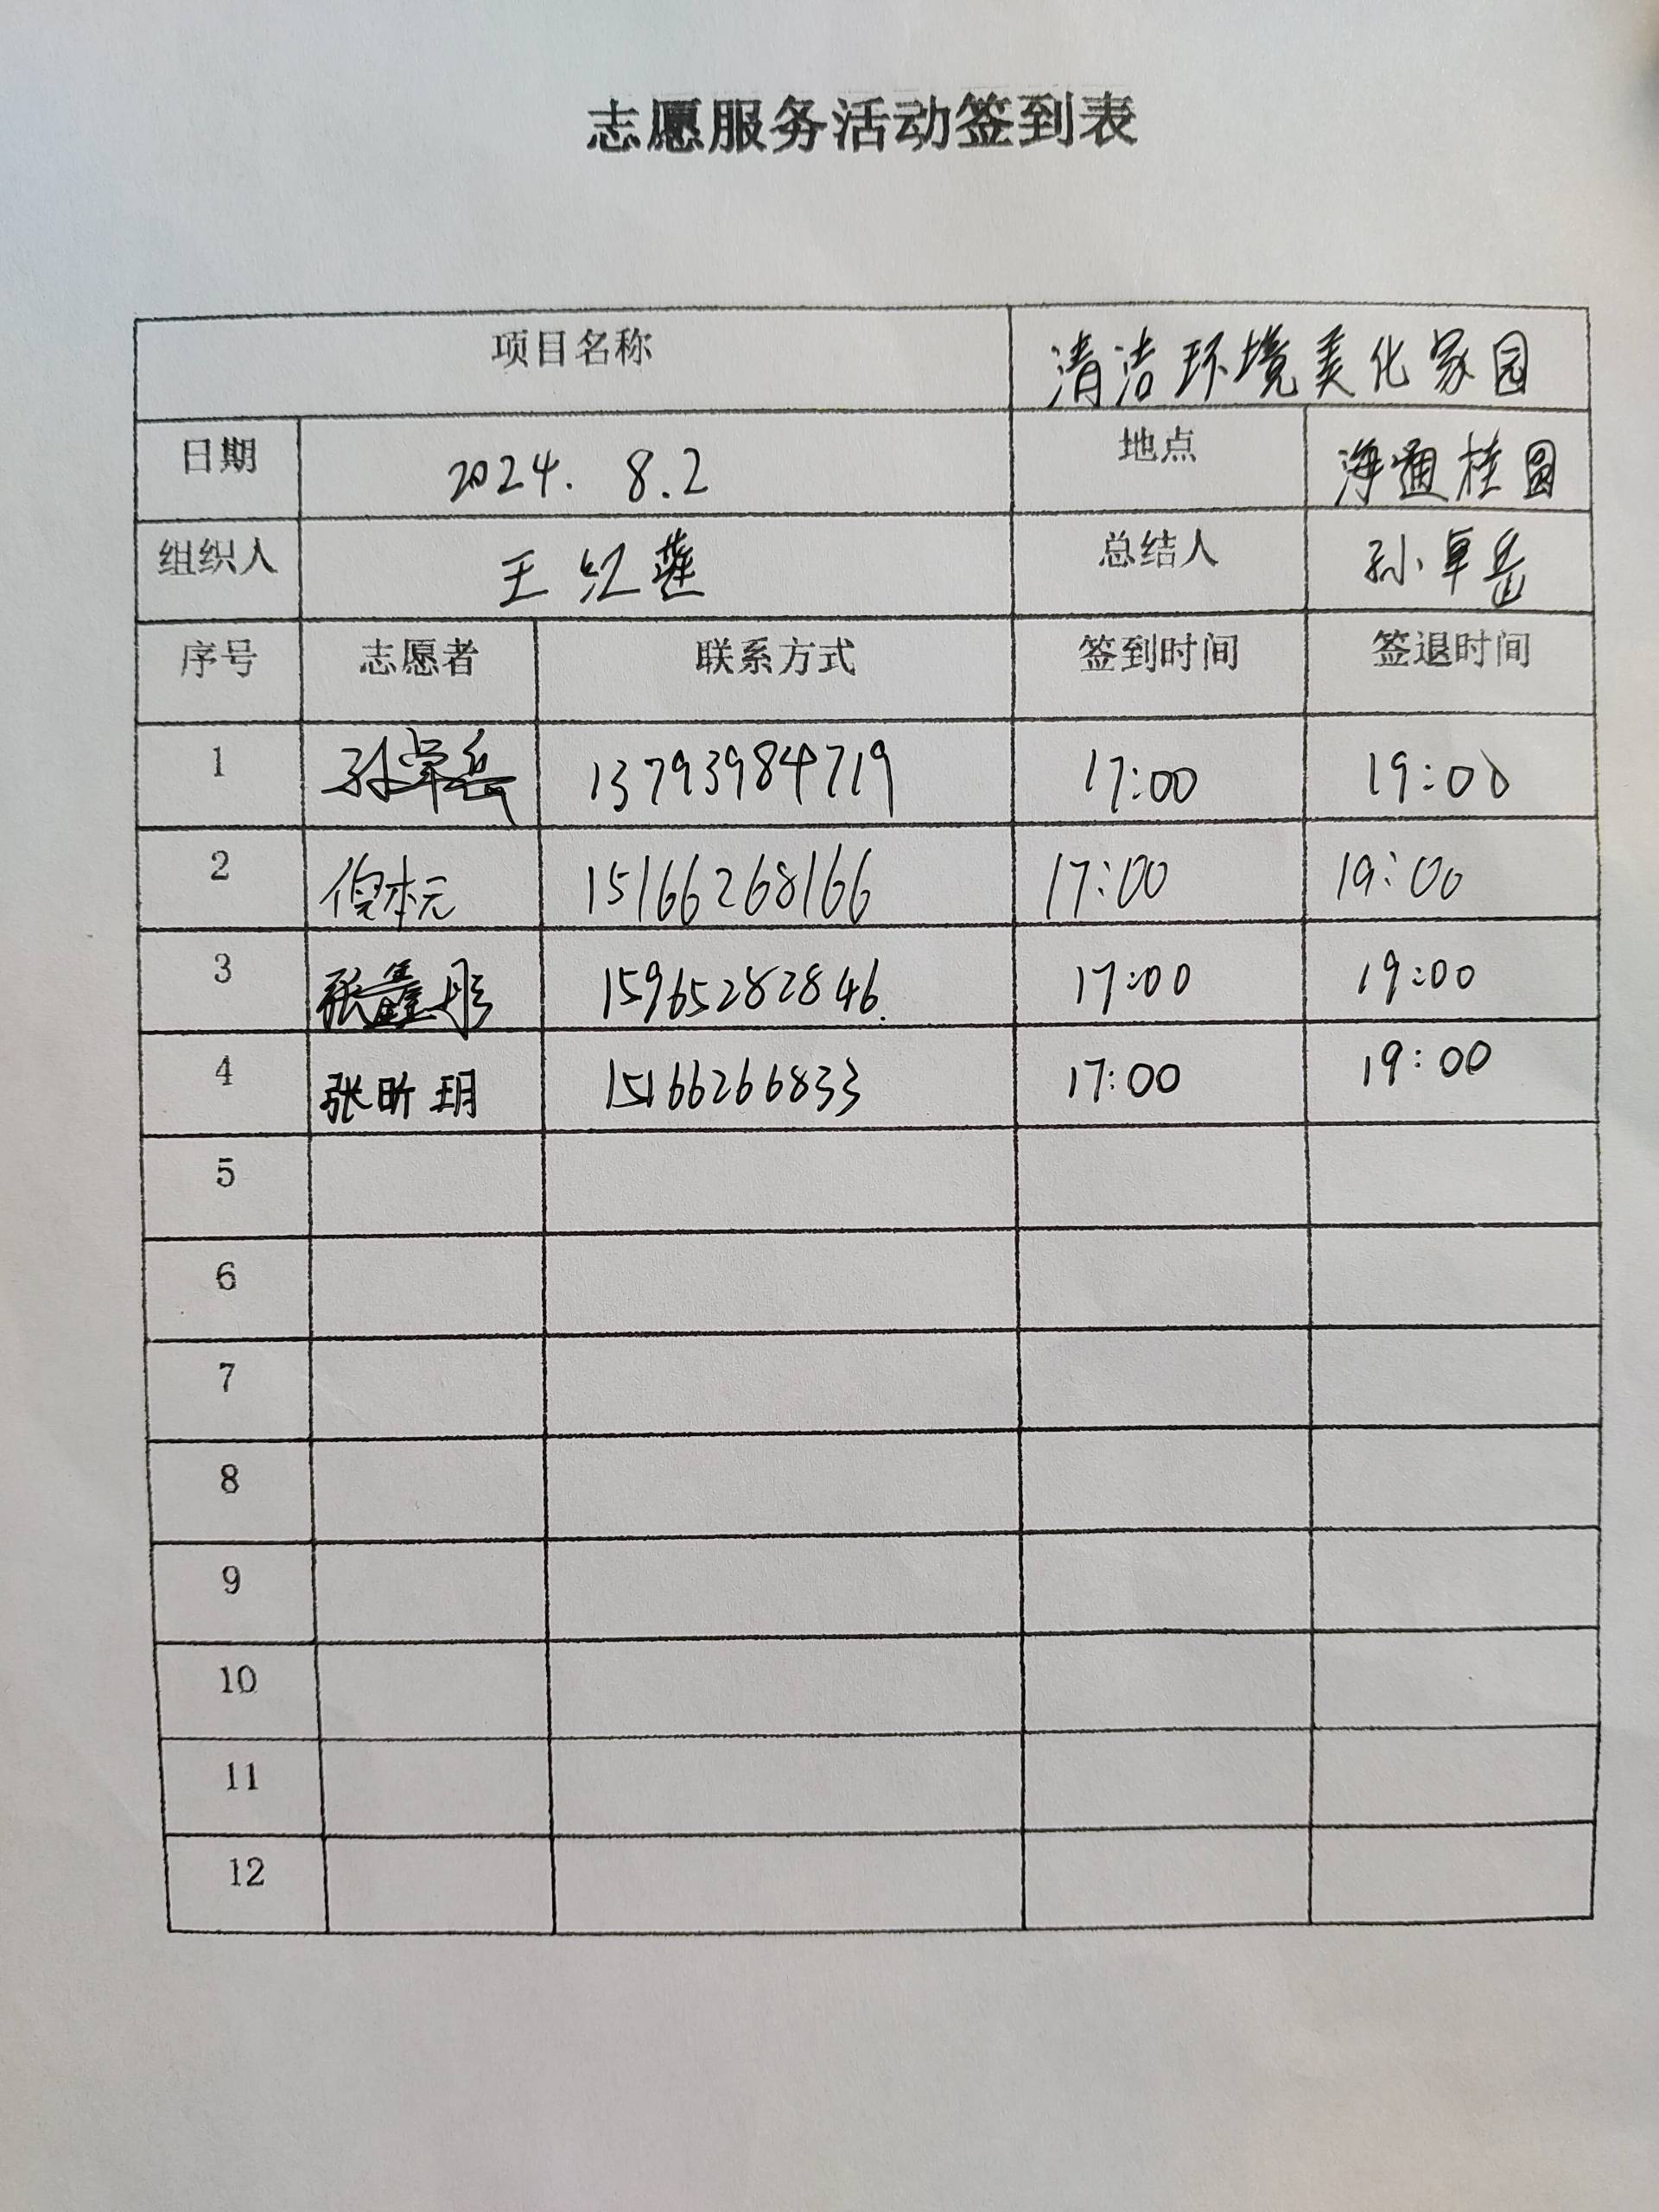 志愿服务活动签到表
项目名称 清洁环境美化家园
日期 2024. 8.2 地点 海通桂圆
组织人 王红莲 总结人 孙卓岳
序号 志愿者 联系方式 签到时间 签退时间
1 孙卓岳 13793984719 17:00 19:00
2 倪本元 15166268166 17:00 19:00
3 张鑫彤 15965282846. 17:00 19:00
4 张昕玥 15166266833 17:00 19:00
5
6
7
8
9
10
11
12